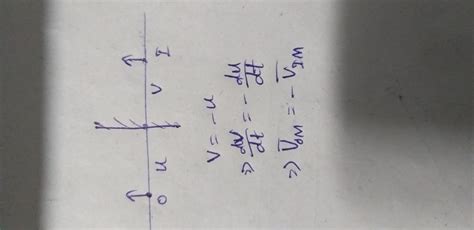 O u V I
V = -u
⇒ dV/dt = - du/dt
⇒ V̄_OM = - V̄_IM